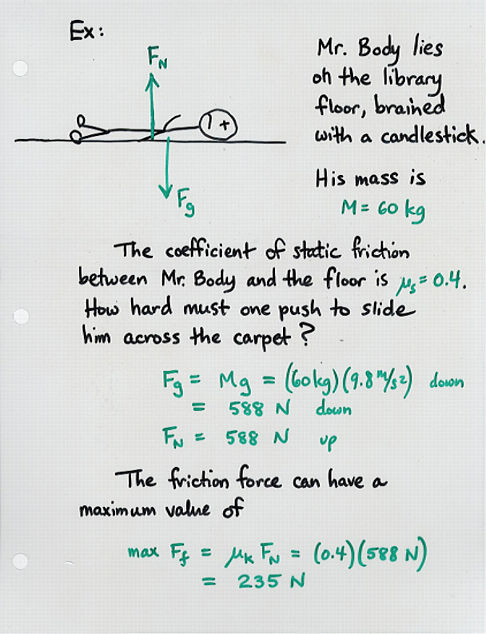 Ex:
F_N
Mr. Body lies
on the library
floor, brained
with a candlestick.
F_g
His mass is
M = 60 kg
The coefficient of static friction
between Mr. Body and the floor is μ_s = 0.4.
How hard must one push to slide
him across the carpet?
F_g = Mg = (60kg)(9.8 m/s²) down
= 588 N down
F_N = 588 N up
The friction force can have a
maximum value of
max F_f = μ_k F_N = (0.4)(588 N)
= 235 N